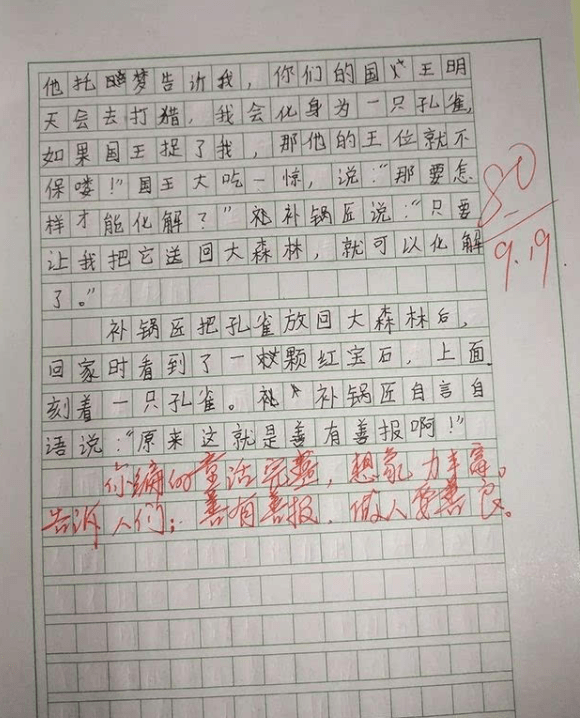 他托梦告诉我，你们的国王明
天会去打猎，我会化身为一只孔雀，
如果国王捉了我，那他的王位就不
保喽！”国王大吃一惊，说：“那要怎
样才能化解？”补锅匠说：“只要
让我把它送回大森林，就可以化解
了。”
补锅匠把孔雀放回大森林后，
回家时看到了一颗红宝石，上面
刻着一只孔雀。补锅匠自言自
语说：“原来这就是善有善报啊！”
你编的童话完整，想象力丰富。
告诉人们：善有善报，做人要善良。
80
9.19